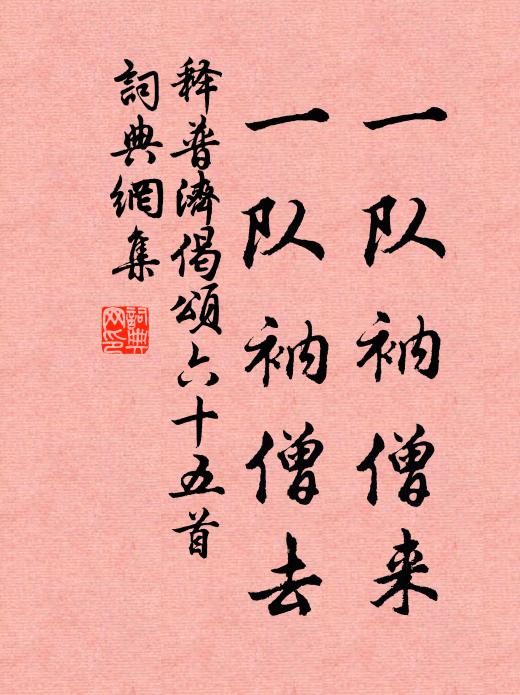 一队衲僧来
一队衲僧去
释普济偈颂六十五首
词典网集
词典网印